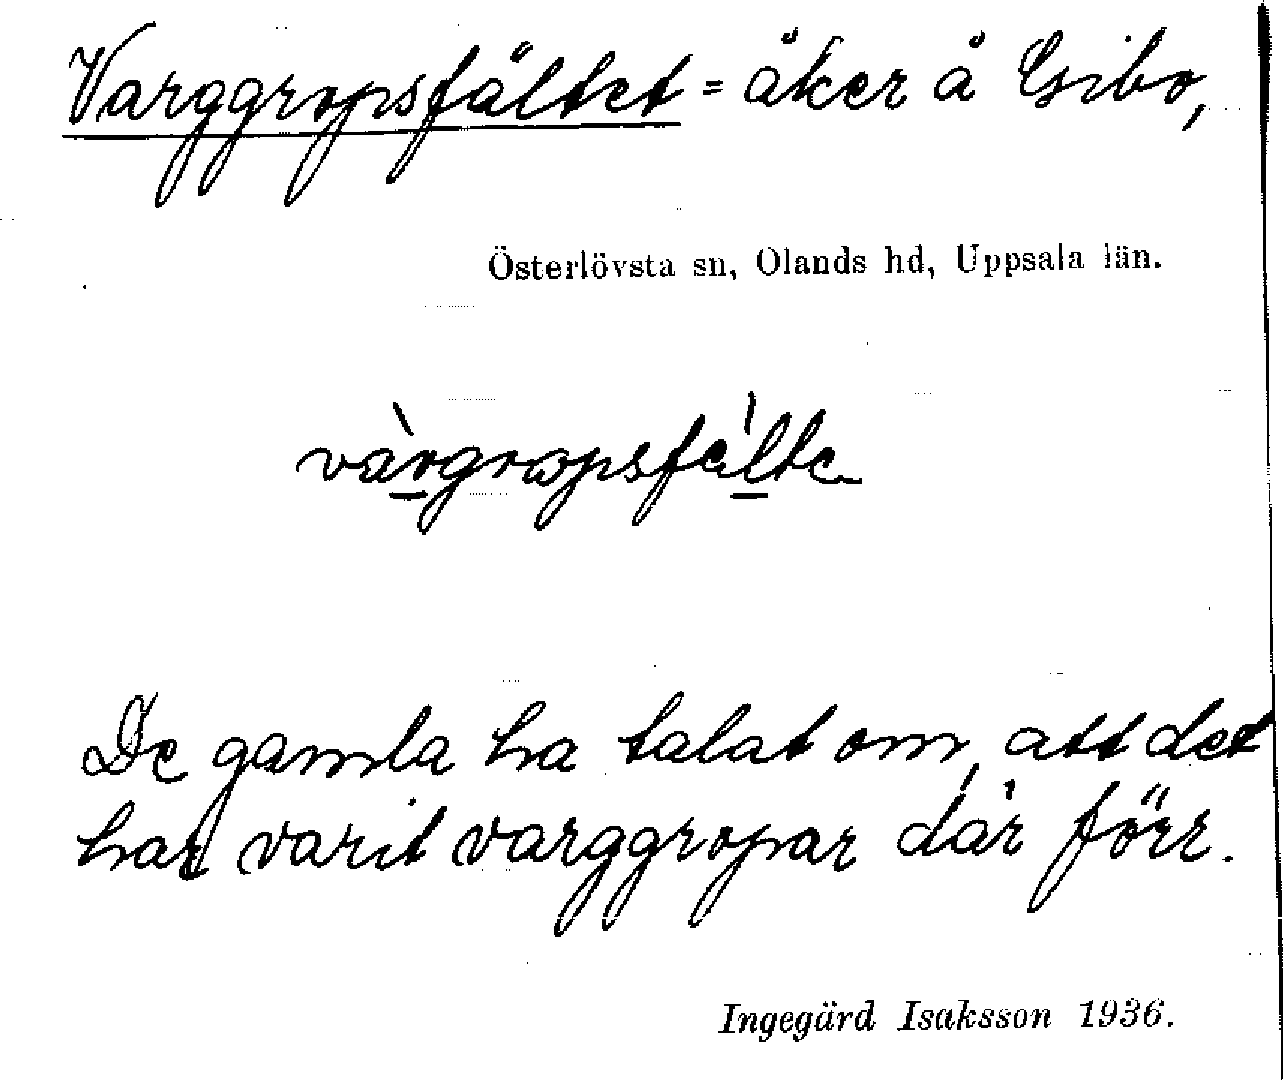 Varggropsfältet = åker å Gibo,
Österlövsta sn, Olands hd, Uppsala län.
vàrgropsfélte
De gamla ha talat om, att det
har varit varggropar där förr.
Ingegärd Isaksson 1936.